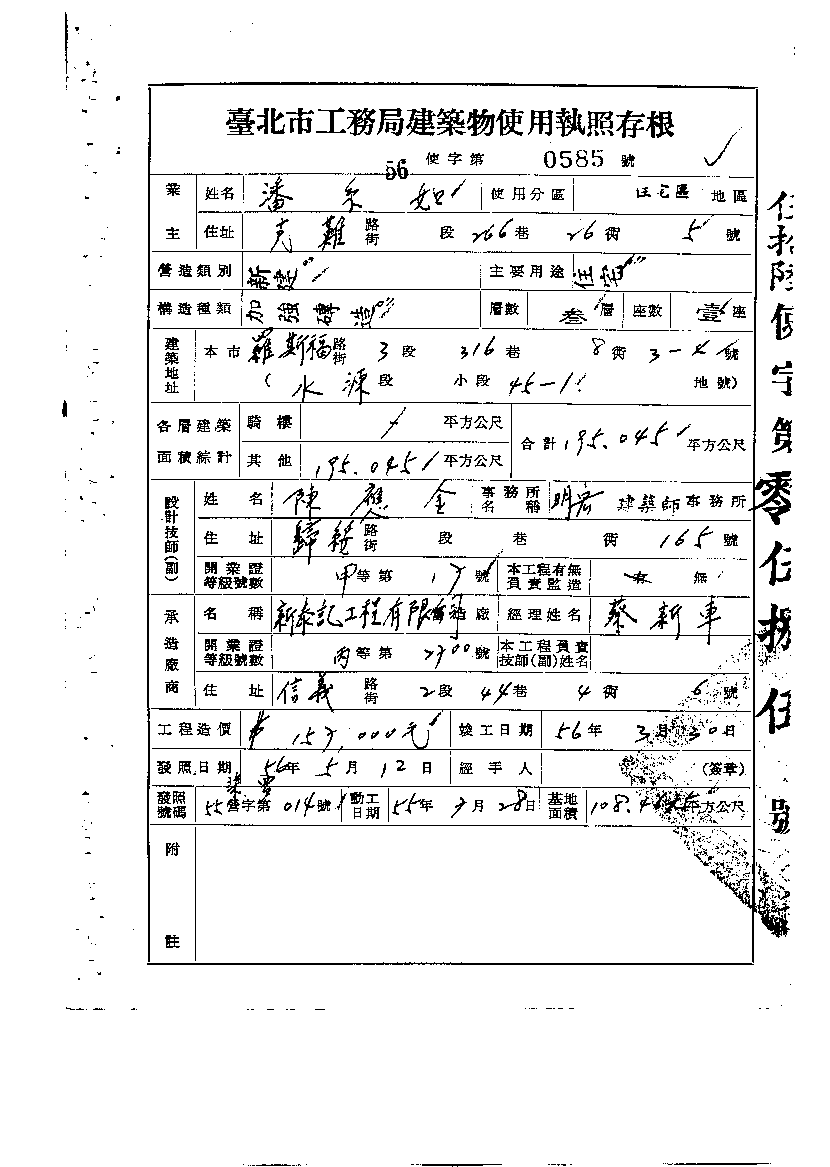 臺北市工務局建築物使用執照存根
56 使字第 0585 號
業主 姓名 潘 如 使用分區 住宅區 地區
住址 克難 路街 段 266 巷 26 衖 5 號
營造類別 新建 主要用途 住宅
構造種類 加強磚造 層數 叁層 座數 壹座
建築地址 本市 羅斯福 路街 3 段 316 巷 8 衖 3-4 號
( 水源 段 小段 45-1 地號)
各層建築面積綜計 騎樓 平方公尺 合計 195.045 平方公尺
其他 195.045 平方公尺
設計技師(副) 姓名 陳應金 事務所名稱 明宏 建築師事務所
住址 歸綏 路街 段 巷 衖 165 號
開業證等級號數 甲等第 號 本工程有無負責監造 有 無
承造廠商 名稱 新泰記工程有限 造廠 經理姓名 蔡新車
開業證等級號數 丙等第 2700 號 本工程負責技師(副)姓名
住址 信義 路街 2 段 44 巷 4 衖 6 號
工程造價 000元 竣工日期 56年 3月 30日
發照日期 56年 5月 12日 經手人 (簽章)
發照號碼 55營字第 014 號 動工日期 55年 月 28日 基地面積 108. 平方公尺
附註
伍拾陸使字第零伍捌伍號